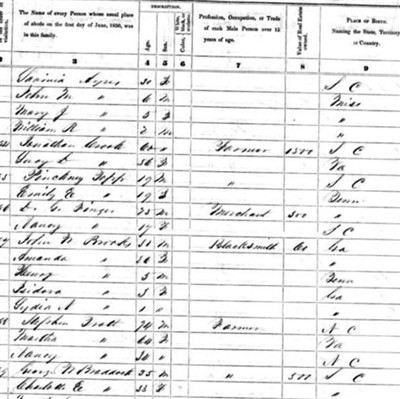 DESCRIPTION.
The Name of every Person whose usual place of abode on the first day of June, 1850, was in this family.
Age.
Sex.
Color,
Profession, Occupation, or Trade of each Male Person over 15 years of age.
Value of Real Estate owned.
PLACE OF BIRTH. Naming the State, Territory or Country.
3 4 5 6 7 8 9
Ayres 30 F S C
John M " 6 M Miss
Mary J " 5 F "
William R " 2 M "
Jonathan Crook 60 " Farmer 1500 S C
" 56 F Va
Pinckney 19 M " S C
Emily E " 19 F Tenn
25 M Merchant 300 "
Nancy " 17 F S C
John W Brooks 31 M Blacksmith 60 Ga
Amanda " 26 F "
Henry " 5 M Tenn
Isidora " 3 F Ga
Lydia A " 1 " "
Stephen 74 M Farmer N C
Martha " 60 F Va
Nancy " 30 " N C
George W Braddock 35 M " 500 S C
Charlotte E " 33 F "